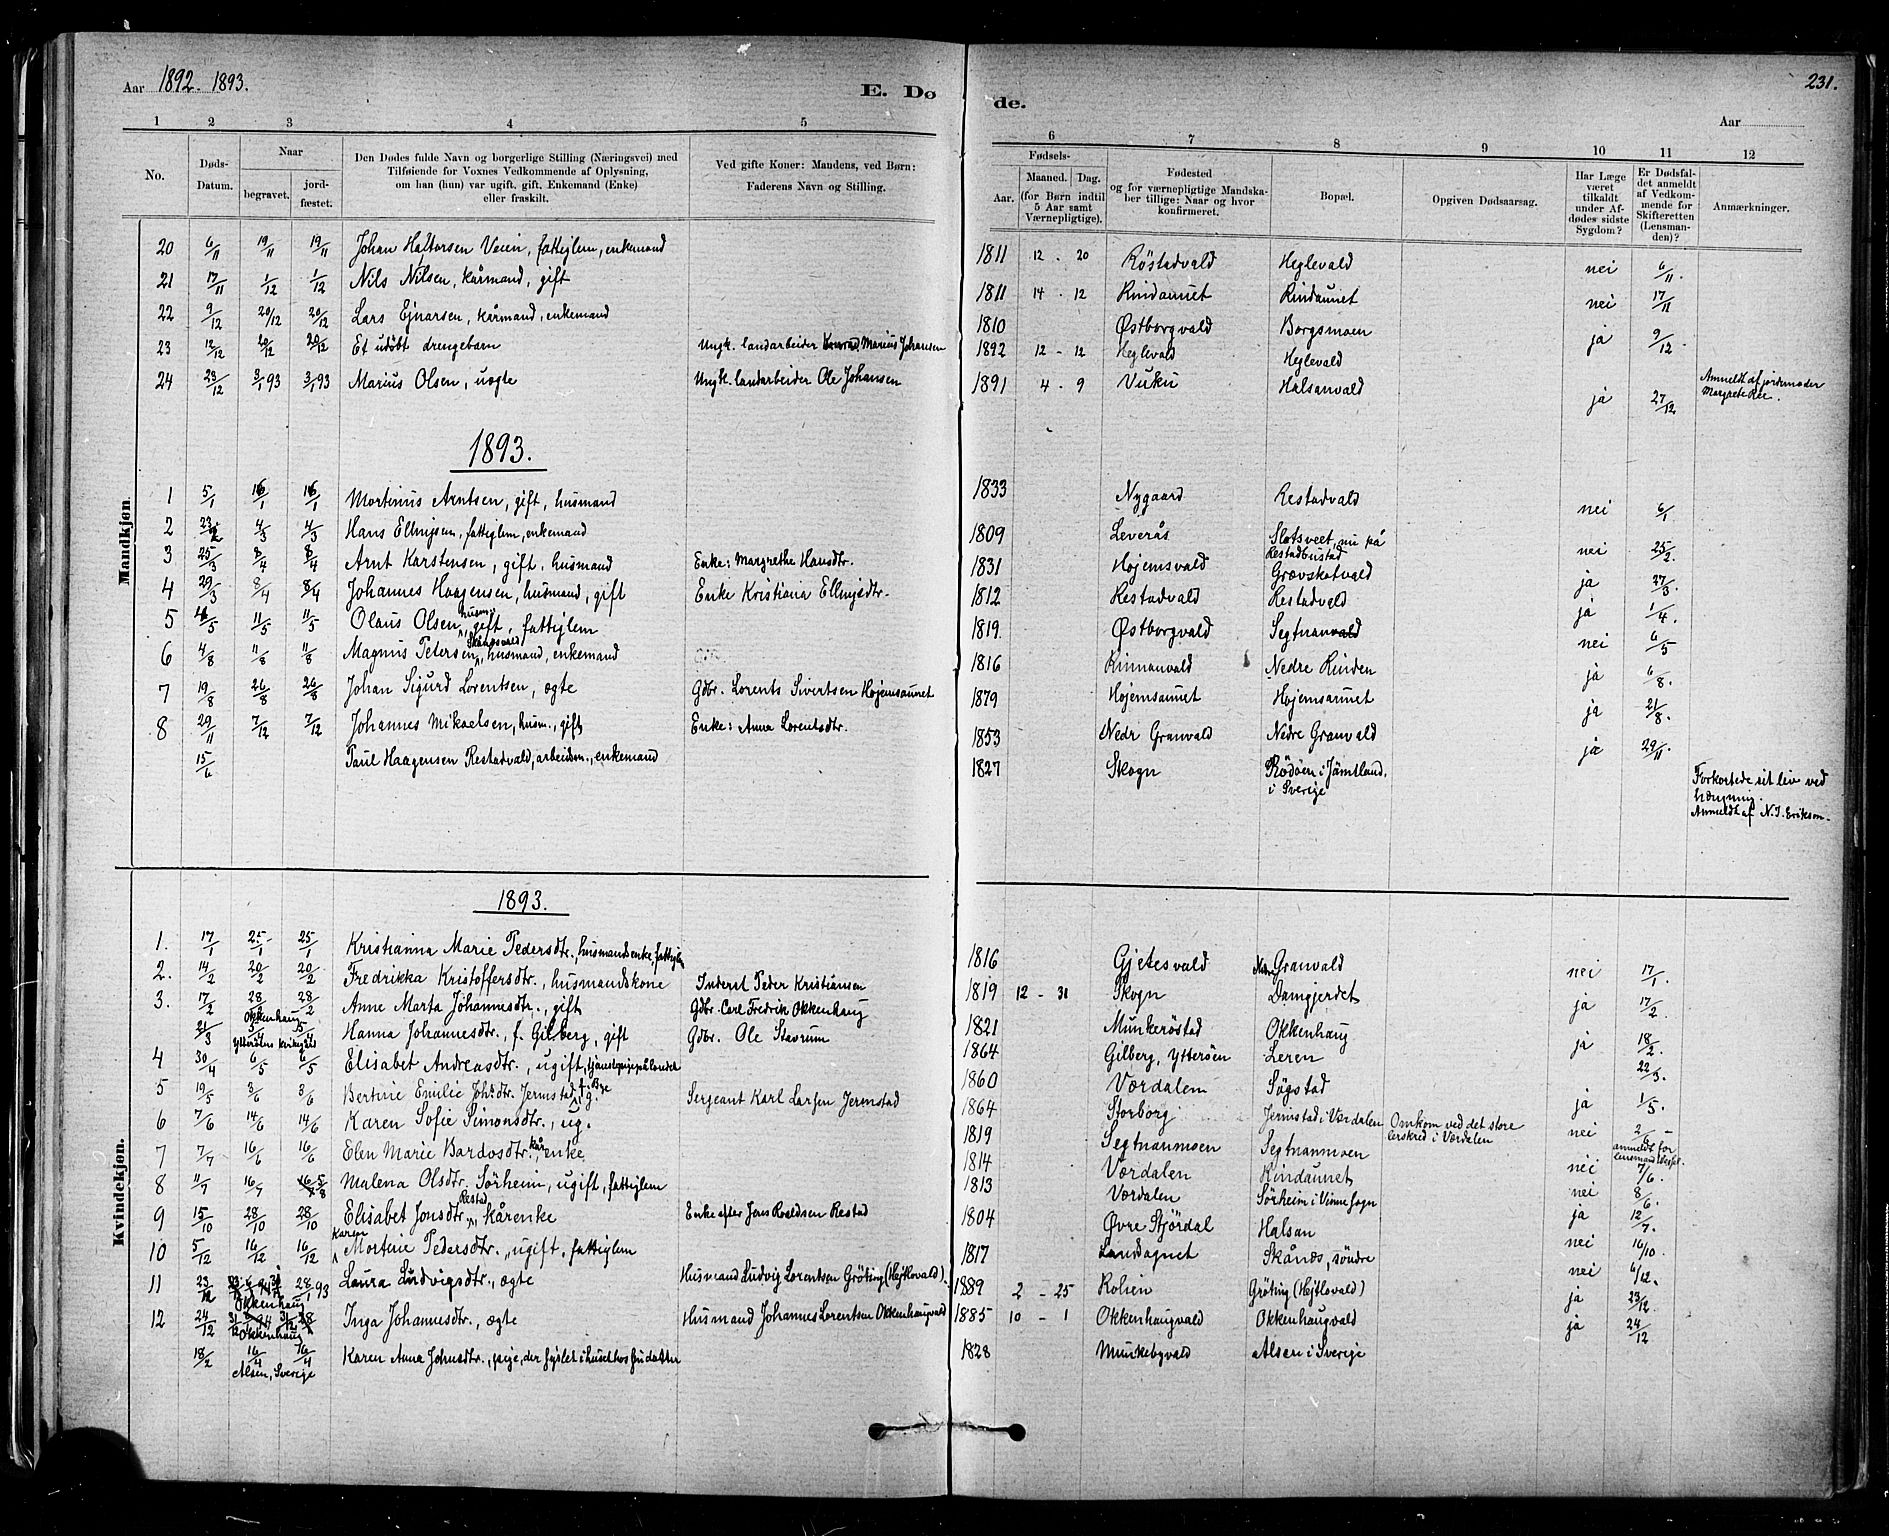 Aar 1892. 1893.
E. Dø
de.
231.
Aar
1 2 3 4 5
6 7 8 9 10 11 12
No.
Døds-Datum.
Naar
begravet.
jord-fæstet.
Den Dødes fulde Navn og borgerlige Stilling (Næringsvei) med
Tilføiende for Voxnes Vedkommende af Oplysning,
om han (hun) var ugift, gift, Enkemand (Enke)
eller fraskilt.
Ved gifte Koner: Mandens, ved Børn:
Faderens Navn og Stilling.
Fødsels-
Aar. Maaned. Dag.
(for Børn indtil
5 Aar samt
Værnepligtige).
Fødested
og for værnepligtige Mandska-
ber tillige: Naar og hvor
konfirmeret.
Bopæl.
Opgiven Dødsaarsag.
Har Læge
været
tilkaldt
under Af-
dødes sidste
Sygdom?
Er Dødsfal-
det anmeldt
af Vedkom-
mende for
Skifteretten
(Lensman-
den)?
Anmærkninger.
Mandkjøn.
20 6/11 19/11 19/11 Johan Haftorsen Veien, fattiglem, enkemand 1811 12 - 20 Röstadvald Heglevald nei 6/11.
21 17/11 1/12 1/12 Nils Nilsen, kårmand, gift 1811 14 - 12 Rindaunet Rindaunet nei 17/11
22 9/12 20/12 20/12 Lars Ejnarsen, kårmand, enkemand 1810 Østborgvald Borgsmoen ja 9/12.
23 12/12 20/12 20/12 Et udöbt drengebarn Ungk. landarbeider Marius Johansen 1892 12 - 12 Heglevald Heglevald Anmeldt af jordemoder Margrete Ree.
24 23/12 3/1 93 3/1 93 Marius Olsen, uægte Ungk. landarbeider Ole Johansen 1891 4 - 9 Vuku Halsanvald ja 27/12
1893.
1 5/1 16/1 16/1 Mortinius Arntsen, gift, husmand 1833 Nygaard Restadvald nei 6/1
2 23/2 4/3 4/3 Hans Ellingsen, fattiglem, enkemand 1809 Leverås Slotsveet, nu på Restadbustad nei 25/2.
3 25/3 8/4 8/4 Arnt Karstensen, gift, husmand Enke: Margrethe Hansdtr. 1831 Hojemsvald Grævskotvald ja 27/3.
4 29/3 8/4 8/4 Johannes Haagensen, husmand, gift Enke Kristiana Ellingsdtr. 1812 Restadvald Restadvald ja 1/4.
5 5 11/5 11/5 Olaus Olsen, husm., gift, fattiglem 1819. Østborgvald Segtnanvald nei 6/5
6 4/8 11/8 11/8 Magnus Petersen Skånesvald, husmand, enkemand 1816 Rinnanvald Nedre Rinden ja 6/8.
7 19/8 26/8 26/8 Johan Sigurd Lorentsen, ægte Gdbr. Lorents Sivertsen Hojemsaunet 1879 Hojemsaunet Hojemsaunet ja 21/8.
8 29/11 7/12 7/12 Johannes Mikaelsen, husm., gift Enke: Anna Lorentsdtr. 1853 Nedr Granvald Nedre Granvald ja 29/11.
15/6 Paul Haagensen Restadvald, arbeidsm., enkemand 1827 Skogn Rödöen i Jämtland, i Sverige Forkortede sit liv ved hængning. Anmeldt af N. J. Erikson.
Kvindekjøn.
1893.
1. 17/1 25/1 25/1 Kristianna Marie Pedersdtr., husmandsenke, fattiglem 1816 Gjetesvald Nedre Granvald nei 17/1.
2. 14/2 20/2 20/2 Fredrikka Kristoffersdtr., husmandskone Inderst Peder Kristiansen 1819 12 - 31 Skogn Damgjerdet ja 17/2.
3. 17/2 28/2 28/2 Okkenhaug Anne Marta Johannesdtr., gift Gdbr. Carl Fredrik Okkenhaug 1821 Munkeröstad Okkenhaug ja 18/2.
21/3 5/4 5/4 Ytterøens kirkegård Hanna Johannesdtr., f. Gilberg, gift Gdbr. Ole Stavrum 1864 Gilberg, Ytterøen Leren 22/3.
4 30/4 6/5 6/5 Elisabet Andreasdtr., ugift, 1860 Værdalen Sögstad ja 1/5.
5 19/5 3/6 3/6 Bertine Emilie Johsdtr. Jermstad, f. Bye, g. Sergeant Karl Larsen Jermstad 1864 Storborg Jermstad i Værdalen Omkom ved det store lerskred i Værdalen nei 2/6 anmeldt for lensmand
6 7/6 14/6 14/6 Karen Sofie Simonsdtr., ug. 1819 Segtnanmoen Segtnanmoen nei 7/6.
7 7/7 16/6 16/6 Elen Marie Bardosdtr., kårenke 1814 Værdalen Rindaunet nei 8/6
8 11/7 16/7 5/8 Malena Olsdtr. Sörheim, ugift, fattiglem 1813 Værdalen Sörheim i Vinne sogn ja 12/7.
9 15/10 28/10 28/10 Elisabet Jonsdtr. Restad, kårenke Enke efter Jens Roaldsen Restad 1804 Øvre Stjördal Halsan nei 16/10.
10 5/12 16/12 16/12 Karen Mortine Pedersdtr., ugift, fattiglem 1817 Landsagnet Skånæs, söndre nei 6/12.
11 23/12 28/1 93 Okkenhaug Laura Ludvigsdtr., ægte Husmand Ludvig Lorentsen Gröting (Hejtlovald). 1889 2 - 25 Rolien Gröting (Hejtlovald) ja 23/12.
12 24/12 31/12 Okkenhaug Inga Johannesdtr., ægte Husmand Johannes Lorentsen Okkenhaugvald 1885 10 - 1 Okkenhaugvald Okkenhaugvald ja 24/12
18/2 16/4 16/4 Alsen, Sverige Karen Anna Johnsdtr., pige, 1828 Munkebyvald Alsen i Sverige